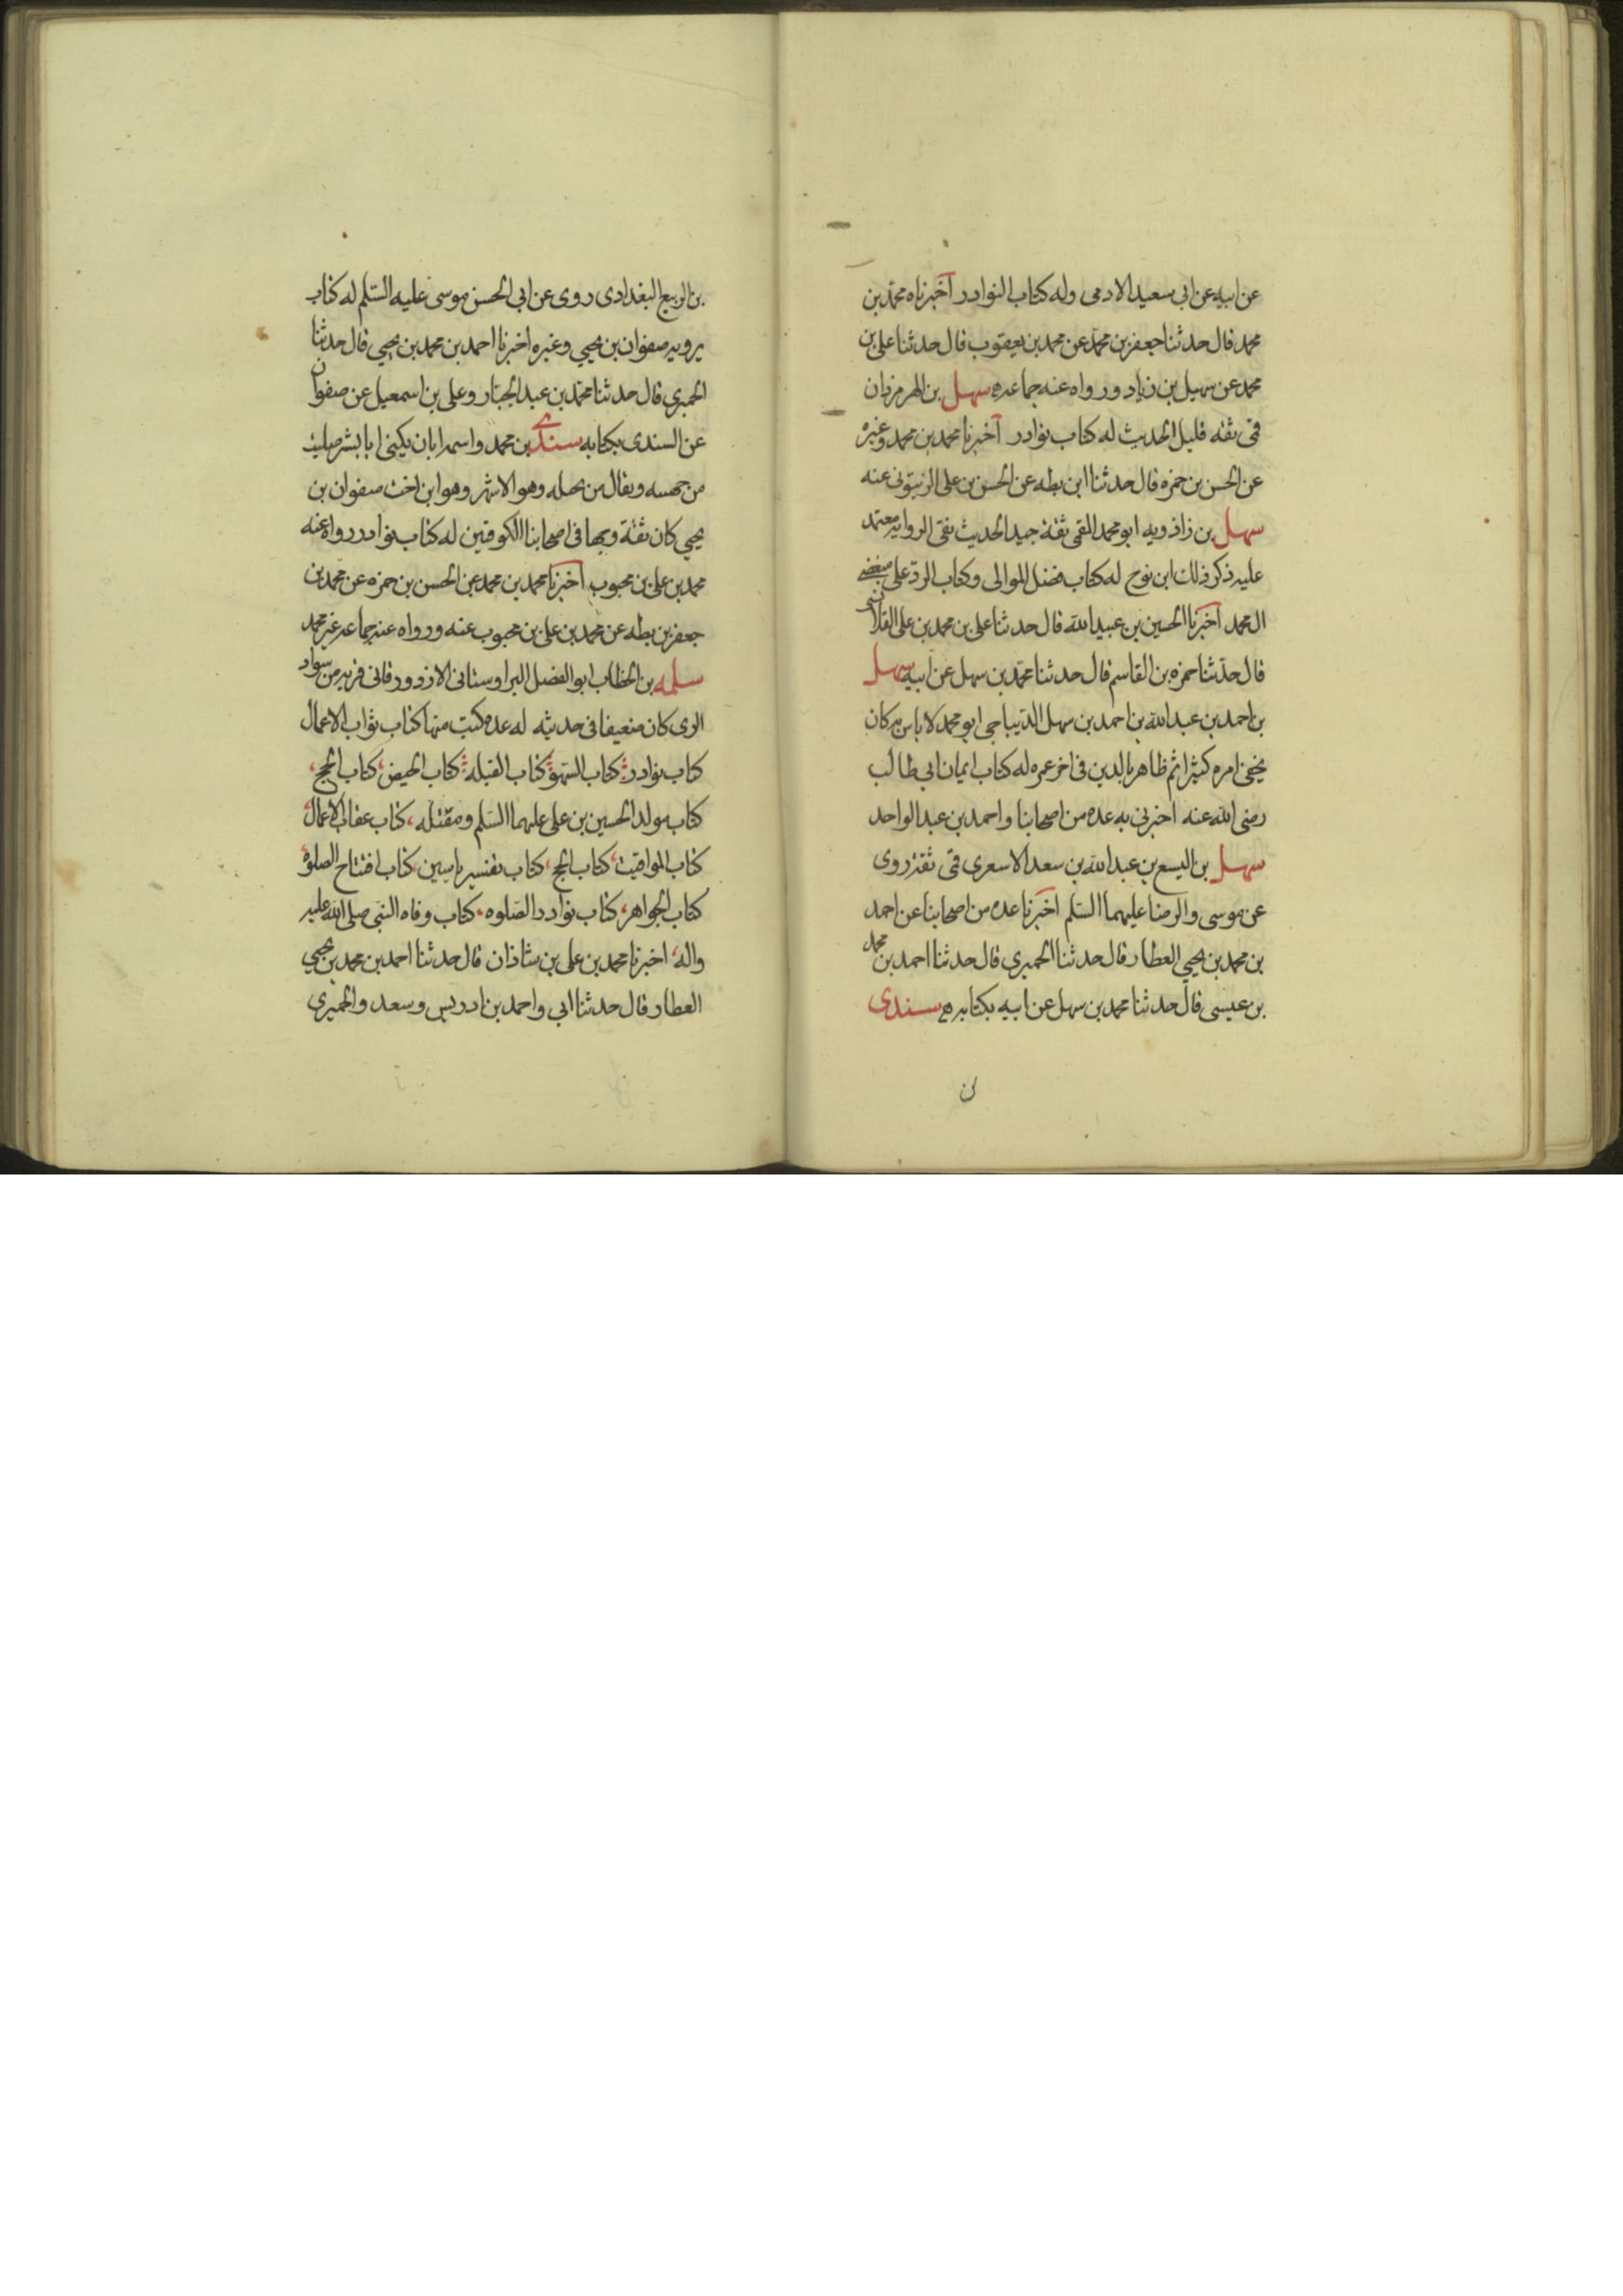 عن ابيه عن ابى سعيد الادمى وله كتاب النوادر اخبرناه محمد بن
محمد قال حدثنا جعفر بن محمد عن محمد بن يعقوب قال حدثنا على بن
محمد عن سهيل بن زياد ورواه عنه جماعه سهل بن الهرمزدان
قمى ثقه قليل الحديث له كتاب نوادر اخبرنا محمد بن محمد وغيره
عن الحسن بن حمزه قال حدثنا ابن بطه عن الحسن بن على الزيتونى عنه
سهل بن زاذويه ابو محمد القمى ثقة جيد الحديث نقى الروايه معتمد
عليه ذكر ذلك ابن نوح له كتاب فضل الموالى وكتاب الرد على مبغضى
ال محمد اخبرنا الحسين بن عبيد الله قال حدثنا على بن محمد بن على القلانسى
قال حدثنا حمزه بن القاسم قال حدثنا محمد بن سهل عن ابيه سهل
بن احمد بن عبد الله بن احمد بن سهل الديباجى ابو محمد لا باس به كان
يخفى امره كثيرا ثم ظاهر بالدين فى اخر عمره له كتاب ايمان ابى طالب
رضى الله عنه اخبرنى به عده من اصحابنا واحمد بن عبد الواحد
سهل بن اليسع بن عبد الله بن سعد الاسعرى قمى ثقة روى
عن موسى والرضا عليهما السلم اخبرنا عده من اصحابنا عن احمد
بن محمد بن يحيى العطار قال حدثنا الحميرى قال حدثنا احمد بن محمد
بن عيسى قال حدثنا محمد بن سهل عن ابيه بكتابه سندى
بن الربيع البغدادى روى عن ابى الحسن موسى عليه السلم له كتاب
يرويه صفوان بن يحيى وغيره اخبرنا احمد بن محمد بن يحيى قال حدثنا
الحميرى قال حدثنا محمد بن عبد الجبار وعلى بن اسمعيل عن صفوان
عن السندى بكتابه سندى بن محمد واسمه ابان يكنى ابا بشر صليب
من جهينه ويقال من بجيله وهو الاشهر وهو ابن اخت صفوان بن
يحيى كان ثقة وجها فى اصحابنا الكوفيين له كتاب نوادر رواه عنه
محمد بن على بن محبوب اخبرنا محمد بن محمد عن الحسن بن حمزه عن محمد بن
جعفر بن بطه عن محمد بن على بن محبوب عنه ورواه عنه جماعه غير محمد
سلمه بن الخطاب ابو الفضل البراوستانى الازدورقانى قريه من سواد
الرى كان ضعيفا فى حديثه له عده كتب منها كتاب ثواب الاعمال
كتاب نوادر كتاب السهو كتاب القبله كتاب الحيض كتاب الحج
كتاب مولد الحسين بن على عليهما السلم ومقتله كتاب عقاب الاعمال
كتاب المواقيت كتاب الحج كتاب تفسير ياسين كتاب افتتاح الصلوة
كتاب الجواهر كتاب نوادر الصلوه كتاب وفاه النبى صلى الله عليه
واله اخبرنا محمد بن على بن شاذان قال حدثنا احمد بن محمد بن يحيى
العطار قال حدثنا ابى واحمد بن ادريس وسعد والحميرى